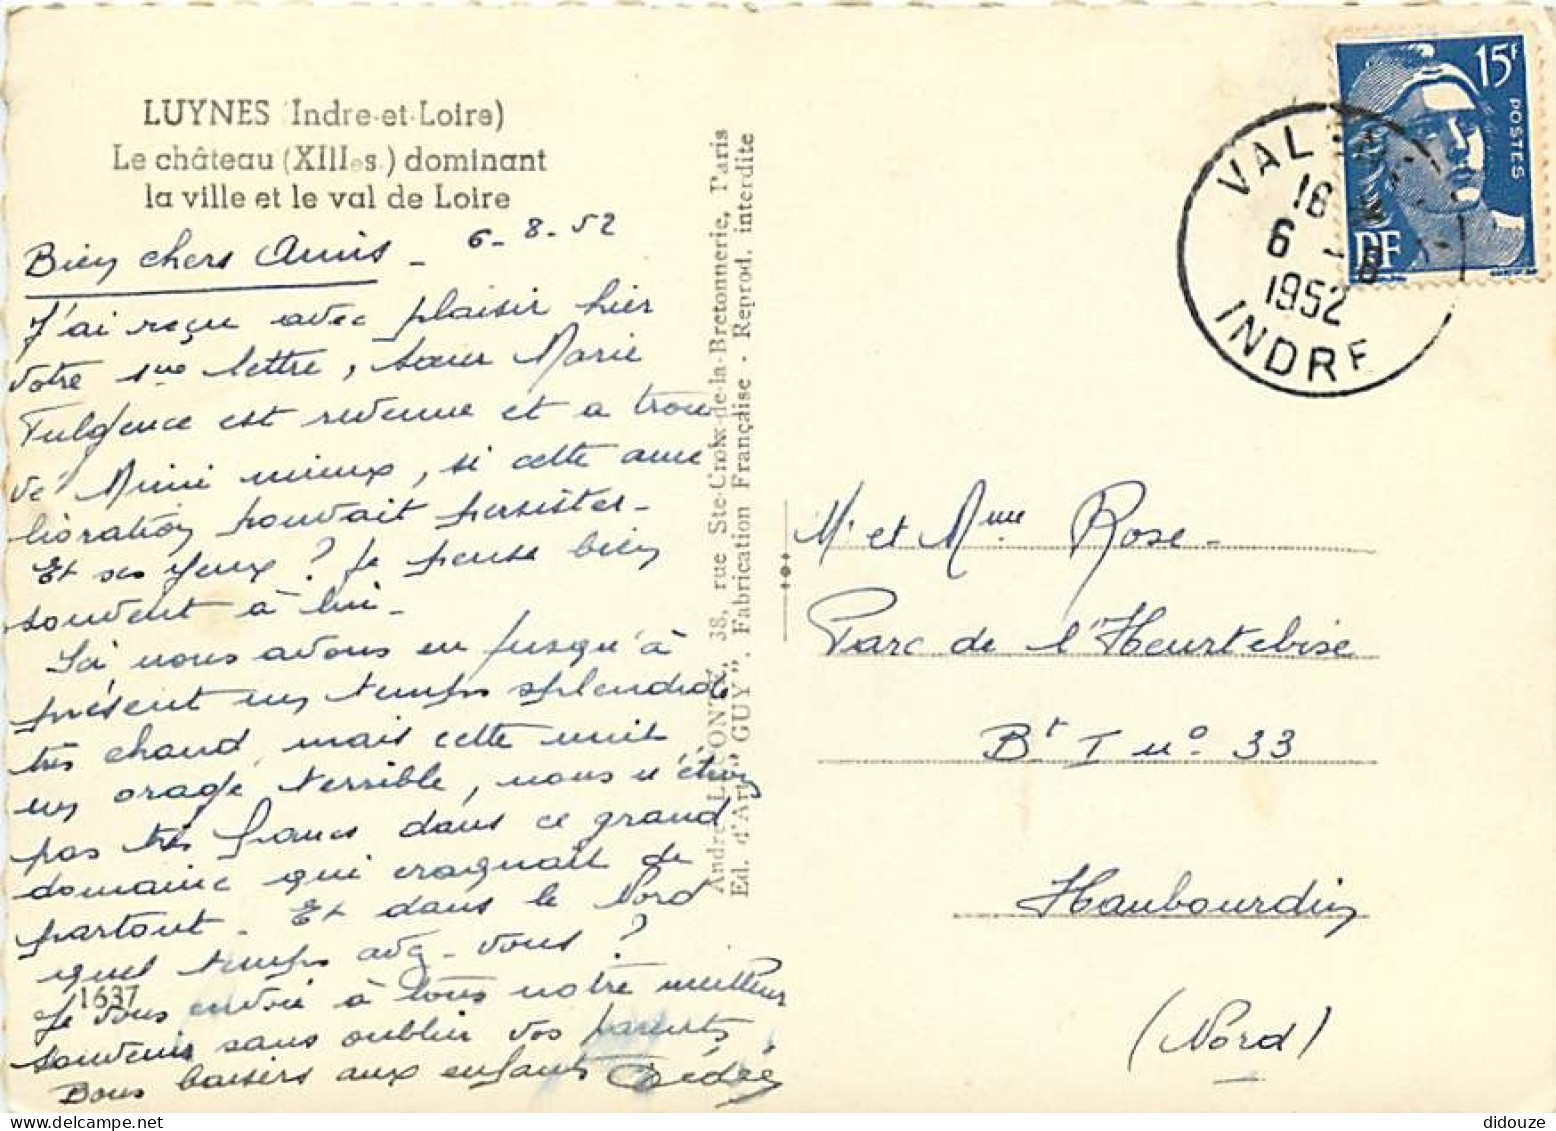 LUYNES (Indre-et-Loire)
Le château (XIIIe s.) dominant
la ville et le val de Loire
6-8-52
Bien chers Amis -
J'ai reçu avec plaisir hier
votre lettre, sœur Marie
Fulgence est revenue et a trou
vé Mimi mieux, si cette amé
lioration pouvait persister -
Et ses yeux ? Je pense bien
souvent à lui -
Ici nous avons eu jusqu'à
présent un temps splendide
très chaud, mais cette nuit
un orage terrible, nous n'étions
pas très fiancs dans ce grand
domaine qui craquait de
partout - Et dans le Nord
quel temps avez-vous ?
Je vous envoie à tous notre meilleur
souvenir sans oublier vos parents
Bons baisers aux enfants Dédée
1637
André LECONTE, 38, rue Ste-Croix-de-la-Bretonnerie, Paris
Ed. d'Art "GUY". Fabrication Française - Reprod. interdite
15F
POSTES
RF
VAL
16
6 - 8
1952
INDRE
Mr et Mme Rose -
Parc de l'Heurtebise
Bt I no 33
Haubourdin
(Nord)
didouze